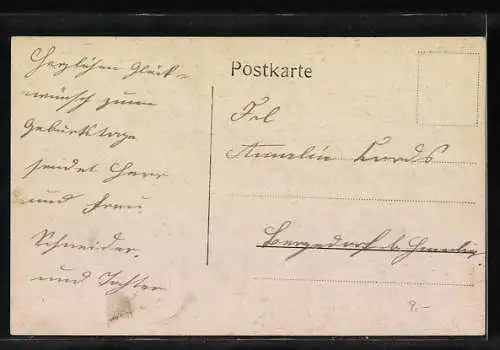 Herzlichen Glück-
wünsch zum
Geburtstage
sendet Herr
und Frau
Schneider.
und Tochter
Postkarte
Frl
Annalin Cords
Bergedorf b. Hambg.
9.-